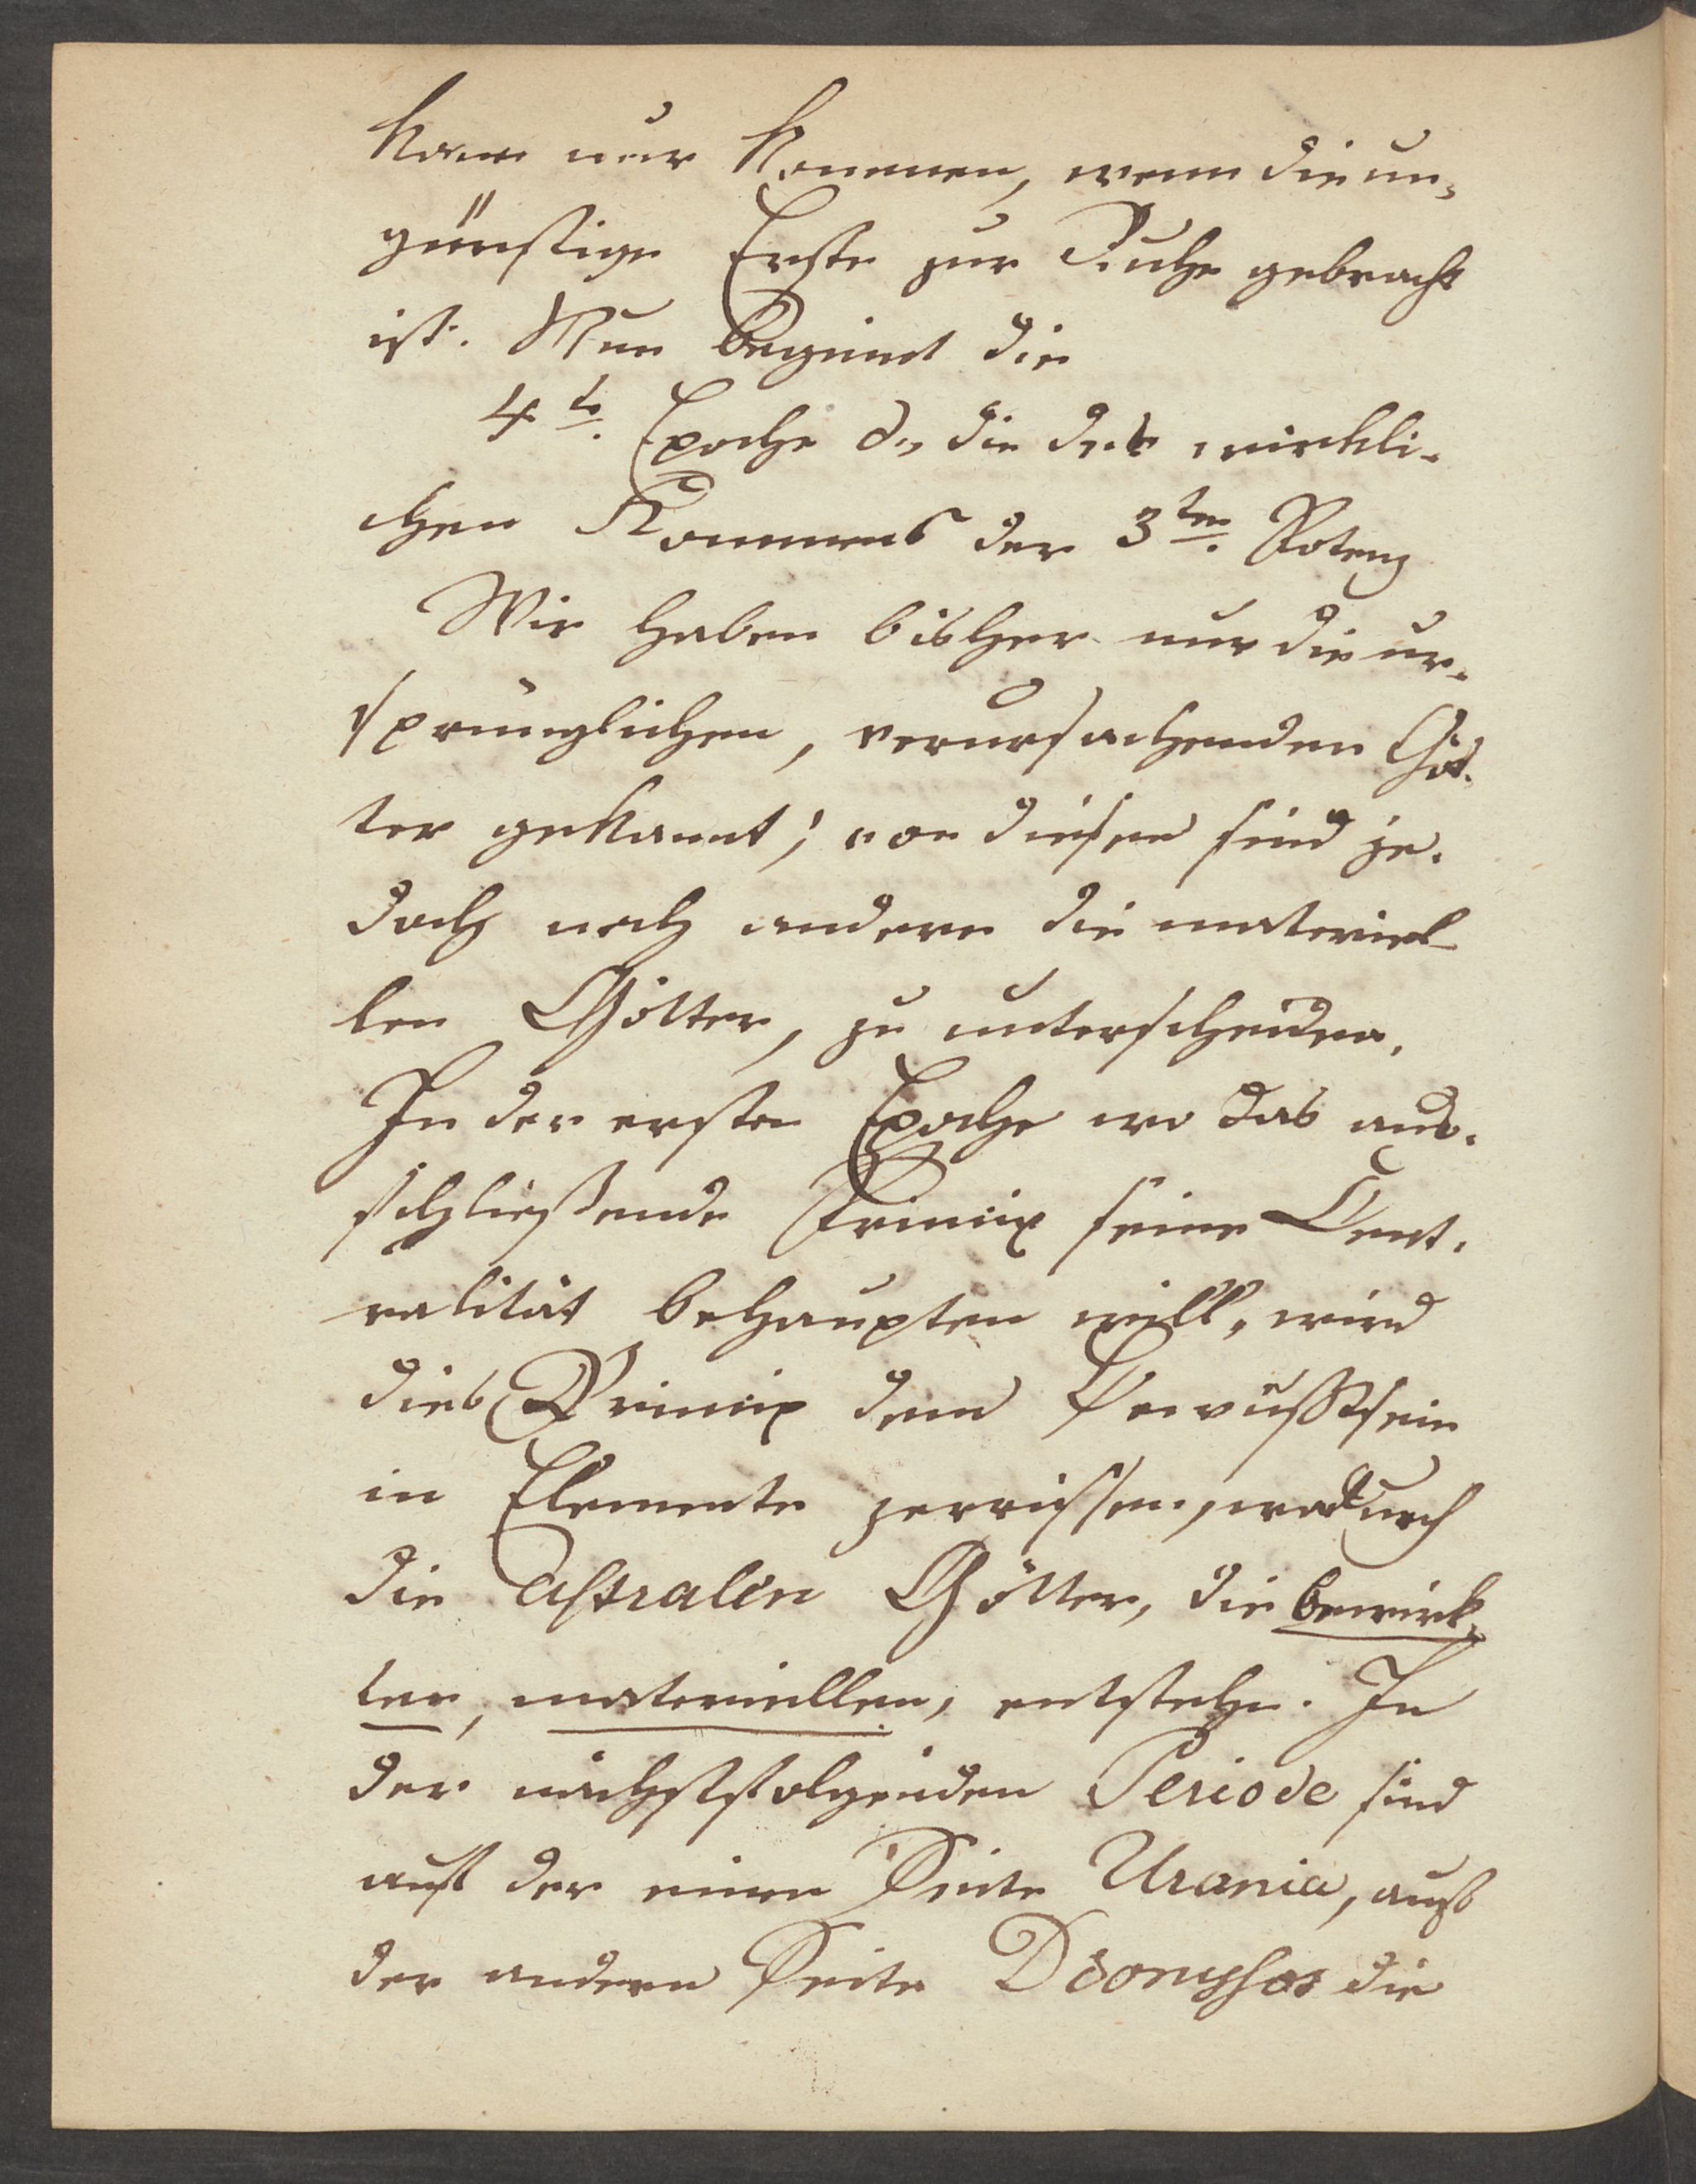 kann nur kommen, wenn die un-
günstige Erste zur Ruhe gebracht
ist. Nun beginnt die
4te. Epoche d., die des wirkli-
chen Kommens der 3ten. Potenz
Wir haben bisher nur die ur-
sprünglichen, verursachenden Göt-
ter gekannt; von diesen sind je-
doch noch andere die materiel-
len Götter, zu unterscheiden.
In der ersten Epoche wo das aus-
schließende Prinzip seine Cent-
ralität behaupten will, wird
dies Prinzip dem Bewußtsein
in Elemente zerrissen, wodurch
die astralen Götter, die bewirk-
ten, materiellen, entstehn. In
der nächstfolgenden Periode sind
auf der einen Seite Urania, auf
der andern Seite Dionysos die